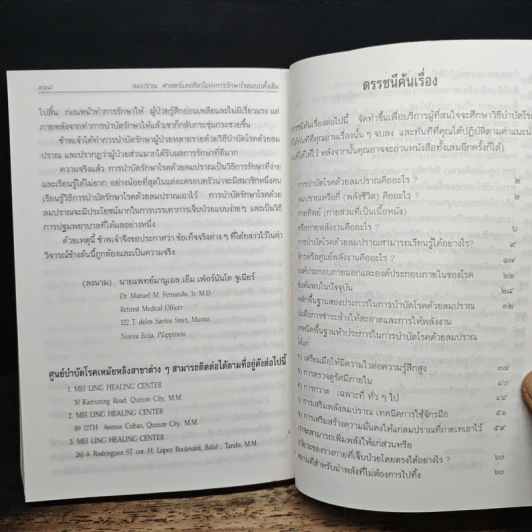 ๑๖๘ ลมปราณ ศาสตร์และศิลป์แห่งการรักษาโรคแบบดั้งเดิม
ไปสิ้น ก่อนหน้าทำการรักษาให้ ผู้ป่วยรู้สึกอ่อนเพลียและไม่มีเรี่ยวแรง แต่
ภายหลังจากทำการบำบัดรักษาให้แล้วเขาก็กลับกระชุ่มกระชวยขึ้น
ข้าพเจ้าได้ทำการบำบัดรักษาผู้ป่วยหลายรายด้วยวิธีบำบัดโรคด้วยลม
ปราณ และปรากฏว่าผู้ป่วยส่วนมากได้รับผลการรักษาที่ดีมาก
ความจริงแล้ว การบำบัดรักษาโรคด้วยลมปราณเป็นวิธีการรักษาที่ง่าย
และเรียนรู้ได้ไม่ยาก อย่างน้อยที่สุดในแต่ละครอบครัวน่าจะมีสมาชิกหนึ่งคน
เรียนรู้วิธีการบำบัดรักษาโรคด้วยลมปราณเอาไว้ การบำบัดรักษาโรคด้วย
ลมปราณจะมีประโยชน์มากในการบรรเทาการเจ็บป่วยแบบง่ายๆ และเป็นวิธี
การปฐมพยาบาลที่ได้ผลอย่างหนึ่ง
ด้วยเหตุนี้ ข้าพเจ้าจึงขอประกาศว่า ข้อเท็จจริงต่างๆ ที่ได้กล่าวไว้ในคำ
วิจารณ์ข้างต้นนี้ถูกต้องและเป็นความจริง
(ลงนาม) นายแพทย์มานูเอล เอ็ม เฟอร์นันโด จูเนียร์
Dr Manuel M. Fernando, Jr. M.D.
Retired Medical Officer
122 T. delos Santos Street, Munoz
Nueva Ecija, Pilippiness
ศูนย์บำบัดโรคเหม่ยหลิงสาขาต่าง ๆ สามารถติดต่อได้ตามที่อยู่ดังต่อไปนี้
1 MEI LING HEALING CENTER
30 Kamuning Road, Quezon City, M.M
2. MEI LING HEALING CENTER
89 12TH Avenue Cubao, Quezon City, M.M.
3. MEI LING HEALING CENTER
261-A Rodringuez ST. cor. H. Lopez Boulevard, Balut , Tondo, M.M.
ดรรชนีค้นเรื่อง
การชนีค้นเรื่องต่อไปนี้ จัดทำขึ้นเพื่อบริการผู้ที่สนใจจะศึกษาวิธีบำบัดโรค
ได้ทันทีที่คุณอ่านเรื่องนั้น ๆ จบลง และทันทีที่คุณได้ปฏิบัติตามคำแนะนำ
ที่ได้ให้ไว้ หลังจากนั้นคุณอาจจะอ่านหนังสือทั้งเล่มอีกครั้งได้)
การบำบัดโรคด้วยลมปราณคืออะไร ? ๒
ลมปราณหรือกี่ (พลังชีวิต) คืออะไร ? ๒
กายทิพย์ (กายส่วนที่เป็นเนื้อหนัง)
หรือกายพลังงานคืออะไร ? ๖
การบำบัดโรคด้วยลมปราณสามารถเรียนรู้ได้อย่างไร? ๙
จักรหรือศูนย์พลังงานคืออะไร ? ๑๗
องค์ประกอบภายนอกและองค์ประกอบภายในของโรค ๒๒
ข้อค้นพบในปัจจุบัน ๒๘
หลักพื้นฐานสองประการในการบำบัดโรคด้วยลมปราณ ๓๒
นั่นคือการชำระล้างให้สะอาดและการให้พลังงาน
เทคนิคพื้นฐานห้าประการในการบำบัดโรคด้วยลมปราณ
ได้แก่
๑) เตรียมมือให้มีความไวต่อความรู้สึกสูง ๓๗
๒) การตรวจดูรัศมีภายใน ๔๐
๓) การกวาด เฉพาะที่ ทั่ว ๆ ไป ๔๔
๔) การเสริมพลังลมปราณ เทคนิคการใช้จักรมือ ๕๑
๕) การเสริมสร้างความมั่นคงให้แก่ลมปราณที่ถ่ายเทเอาไว้ ๕๙
เราจะสามารถเพิ่มพลังให้แก่ส่วนหรือ
อวัยวะของร่างกายที่เจ็บป่วยโดยตรงได้อย่างไร ? ๖๐
สถานที่สำหรับนำพลังที่ไม่ต้องการไปทิ้ง ๖๐